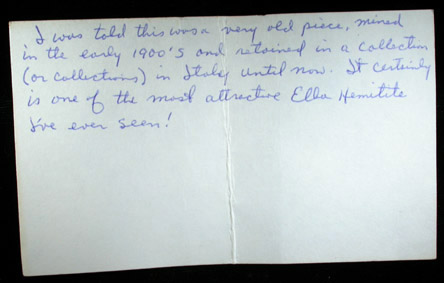 I was told this was a very old piece, mined
in the early 1900's and retained in a collection
(or collections) in Italy until now. It certainly
is one of the most attractive Elba Hemitite
I've ever seen!